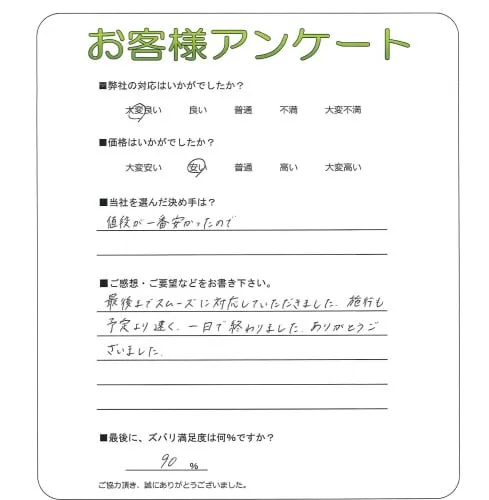 お客様アンケート
■弊社の対応はいかがでしたか？
大変良い 良い 普通 不満 大変不満
■価格はいかがでしたか？
大変安い 安い 普通 高い 大変高い
■当社を選んだ決め手は？
値段が一番安かったので
■ご感想・ご要望などをお書き下さい。
最後までスムーズに対応していただきました。施行も
予定より速く、一日で終わりました。ありがとうご
ざいました。
■最後に、ズバリ満足度は何%ですか？
90 %
ご協力頂き、誠にありがとうございました。